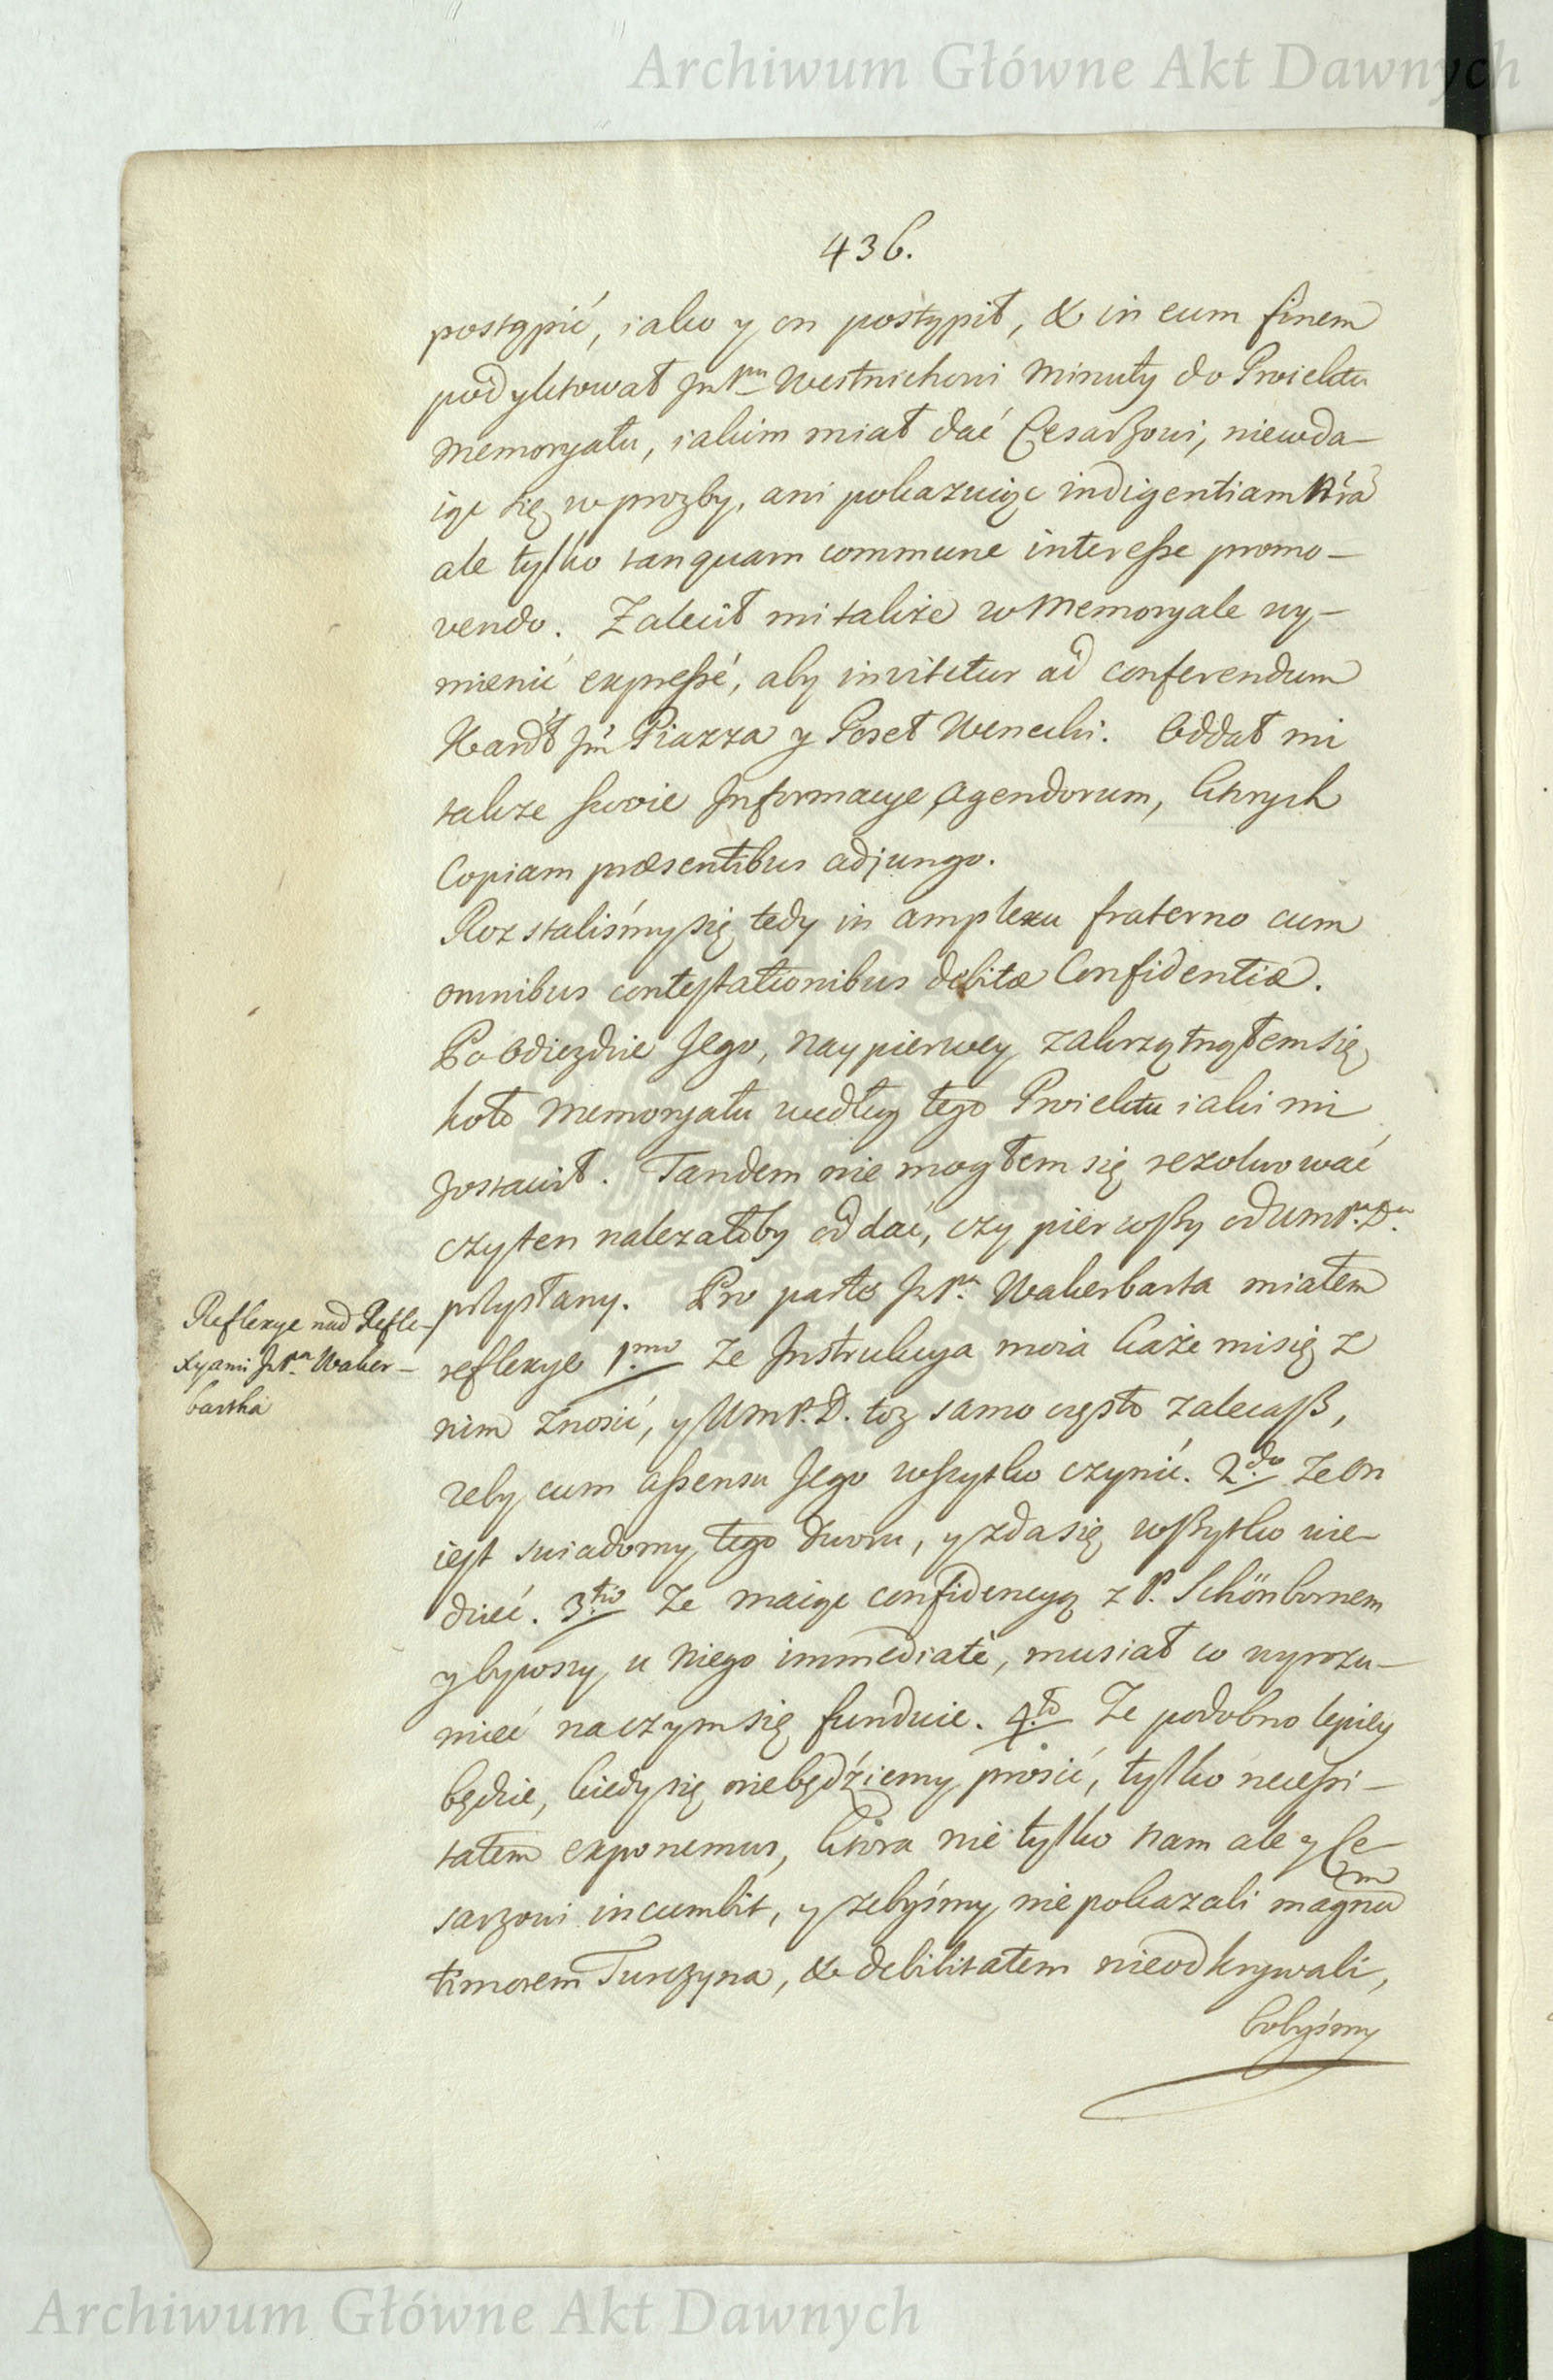 Archiwum Główne Akt Dawnych
436.
postąpić, iako y on postąpił, & in eum finem
podyktował JmPnu Westnichowi Minuty do Proiektu
Memoryału, iakim miał dać Cesarzowi, niewda-
iąc się w prozby, ani pokazuiąc indigentiam nrã
ale tylko tanquam commune interesse promo-
vendo. Zalecił mi także w Memoryale wy-
mienić expressé, aby invitetur ad conferendum
Kardł Jm̃ Piazza y Poseł Wenecki. Oddał mi
także swoie Informacye Agendorum, ktorych
Copiam præsentibus adjungo.
Rozstaliśmy się tedy in amplexu fraterno cum
omnibus contestationibus debitæ Confidentiæ.
Po Odiezdzie Jego, naypierwey zakrzątnąłem się
koło Memoryału według tego Proiektu iaki mi
zostawił. Tandem nie mogłem się rezolwować
czy ten nalezałoby oddać, czy pierwszy od UmPna Dn.
przysłany. Pro parte JPn. Wakerbarta miałem
Reflexye nad Refle-
xyami JPna Waker-
bartha
reflexye 1mo Ze Instrukcya moia każe mi się z
nim znosić, y UmP.D. toz samo często zalecasz,
zeby cum assensu Jego wszytko czynić. 2do Ze on
iest swiadomy tego Dworu, y zda się wszytko wie-
dzieć. 3tio Ze maiąc confidencyą z P. Schönbornem
y bywszy u niego immediaté, musiał co wyrozu-
mieć na czym się funduie. 4to Ze podobno lepiey
będzie, kiedy się niebędziemy prosić, tylko necessi-
tatem exponemus, ktora nie tylko nam ale y Ce-
sarzowi incumbit, y zebyśmy nie pokazali magnum
timorem Turczyna, & debilitatem nieodkrywali,
bobyśmy
Archiwum Główne Akt Dawnych